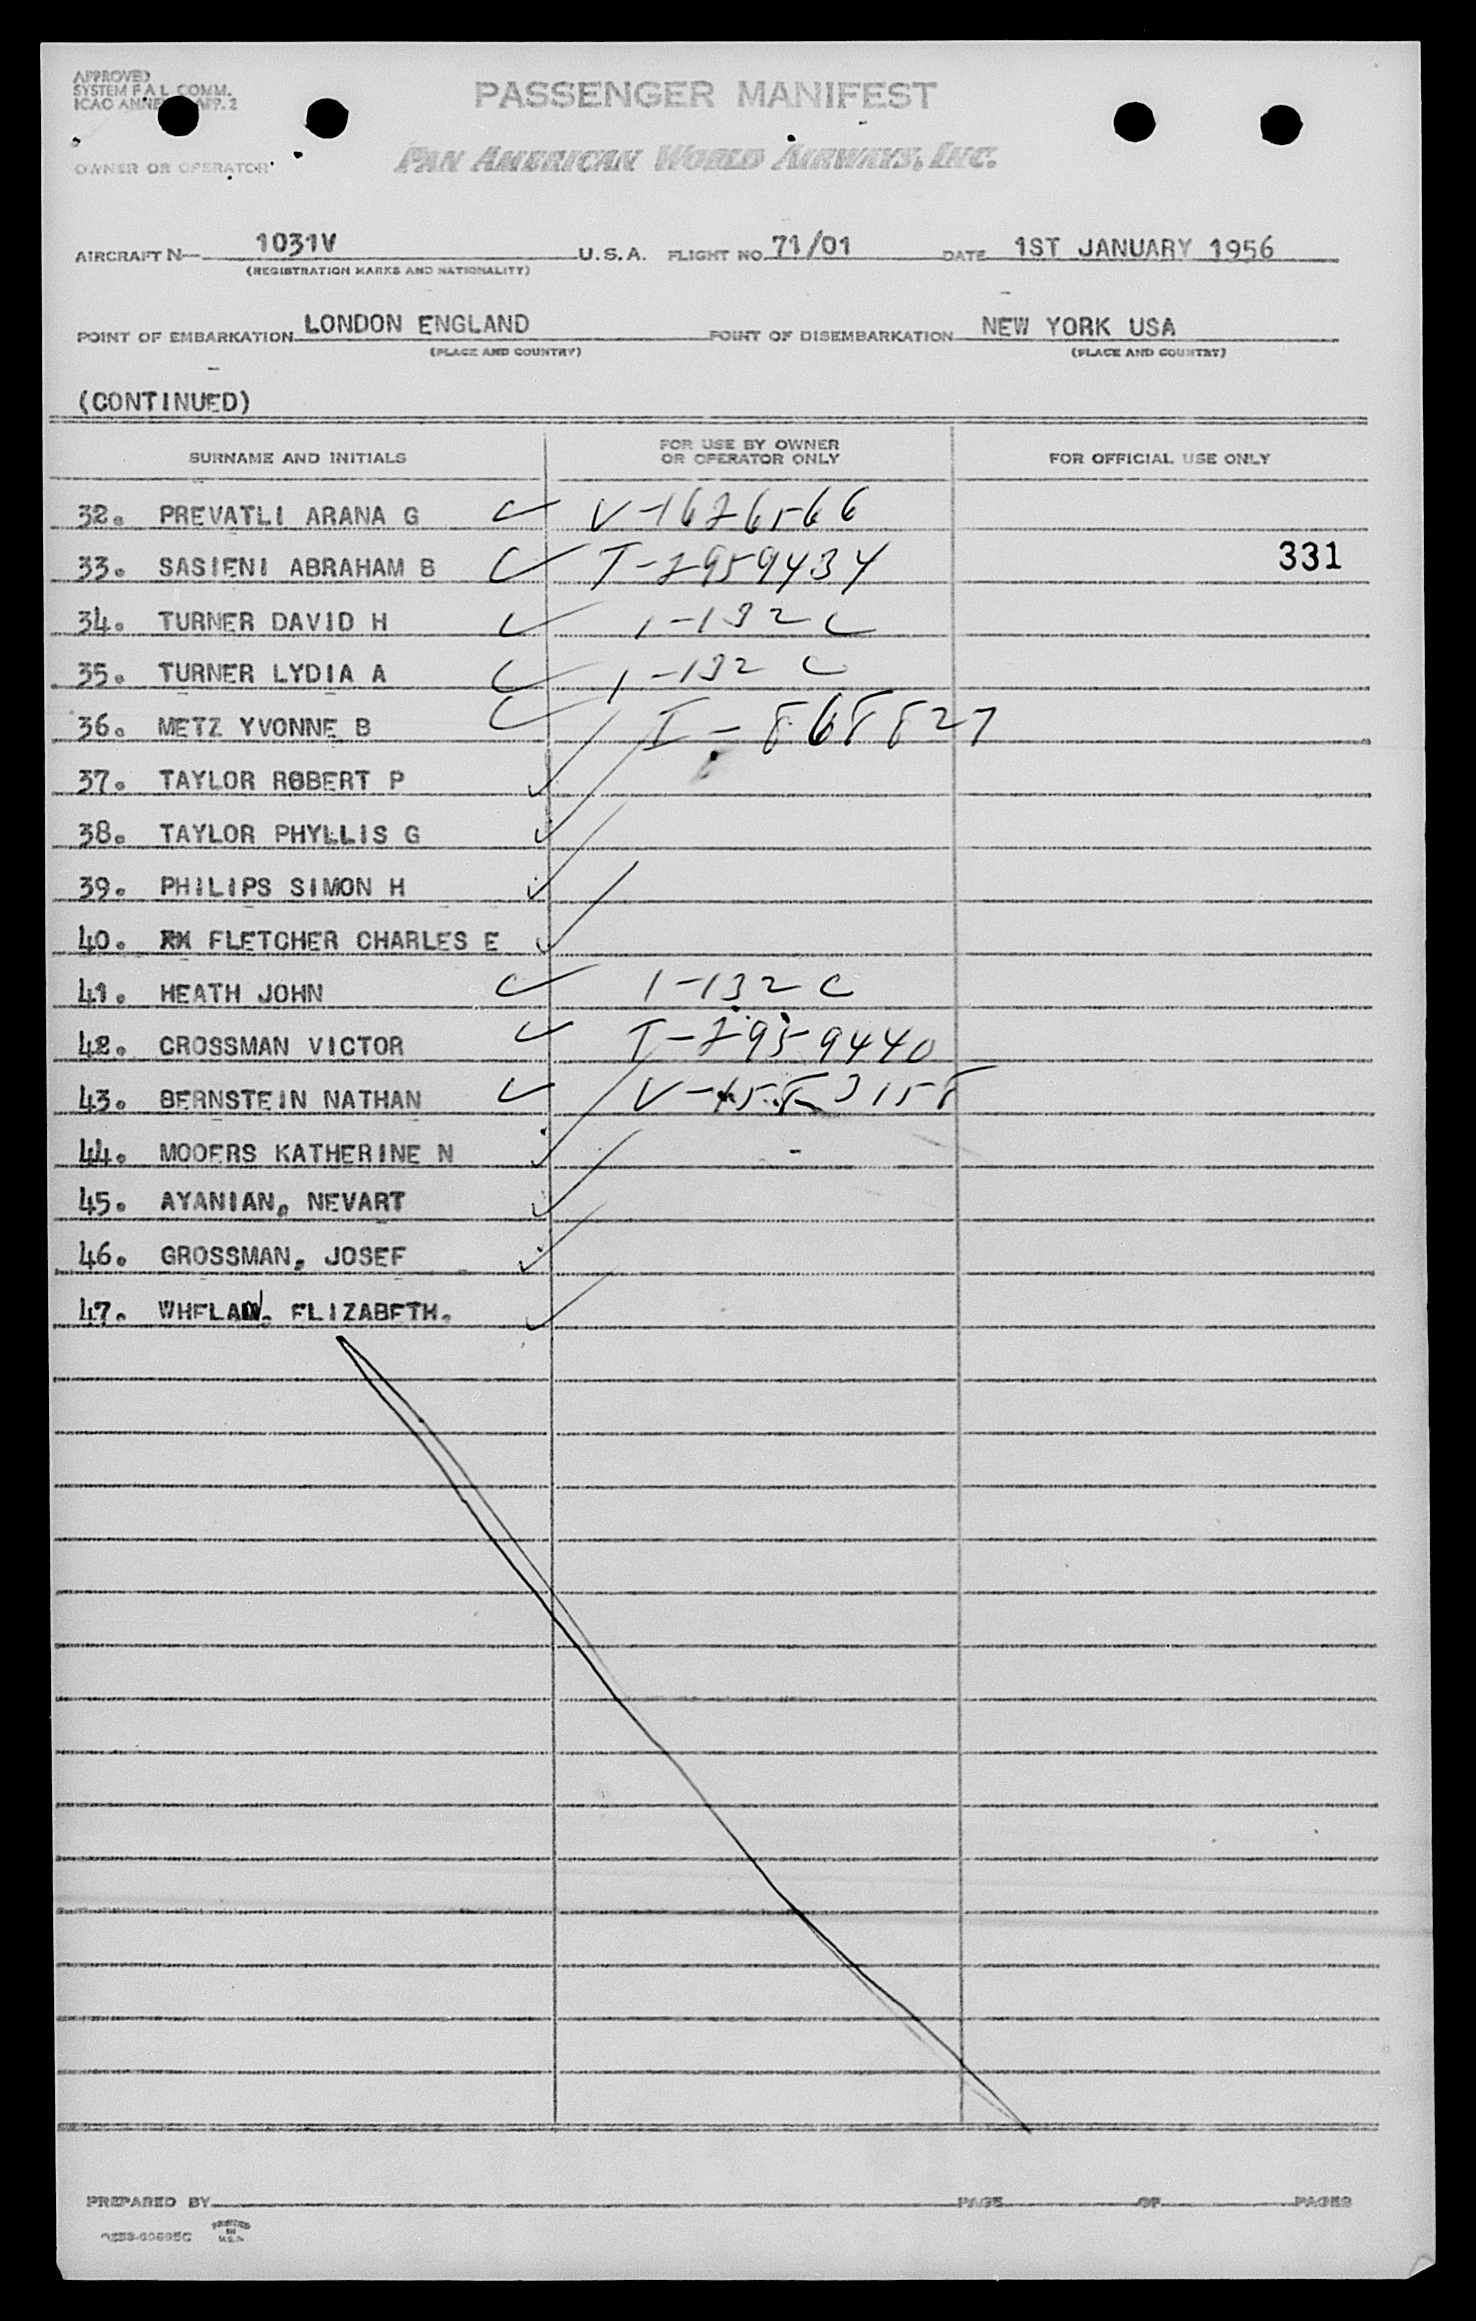 APPROVED
SYSTEM F A L COMM.
ICAO ANNEX APP. 2
PASSENGER MANIFEST
OWNER OR OPERATOR
PAN AMERICAN WORLD AIRWAYS, INC.
AIRCRAFT N— 1031V U.S.A. FLIGHT NO. 71/01 DATE 1ST JANUARY 1956
(REGISTRATION MARKS AND NATIONALITY)
POINT OF EMBARKATION LONDON ENGLAND POINT OF DISEMBARKATION NEW YORK USA
(PLACE AND COUNTRY) (PLACE AND COUNTRY)
(CONTINUED)
SURNAME AND INITIALS FOR USE BY OWNER OR OPERATOR ONLY FOR OFFICIAL USE ONLY
32. PREVATLI ARANA G V-1626566
33. SASIENI ABRAHAM B T-2959434 331
34. TURNER DAVID H 1-132 C
35. TURNER LYDIA A 1-132 C
36. METZ YVONNE B I-868827
37. TAYLOR ROBERT P
38. TAYLOR PHYLLIS G
39. PHILIPS SIMON H
40. FLETCHER CHARLES E
41. HEATH JOHN 1-132 C
42. CROSSMAN VICTOR T-2959440
43. BERNSTEIN NATHAN V-1583158
44. MOOERS KATHERINE N
45. AYANIAN, NEVART
46. GROSSMAN, JOSEF
47. WHELAN, ELIZABETH.
PREPARED BY PAGE OF PAGES
PRINTED IN U.S.A.